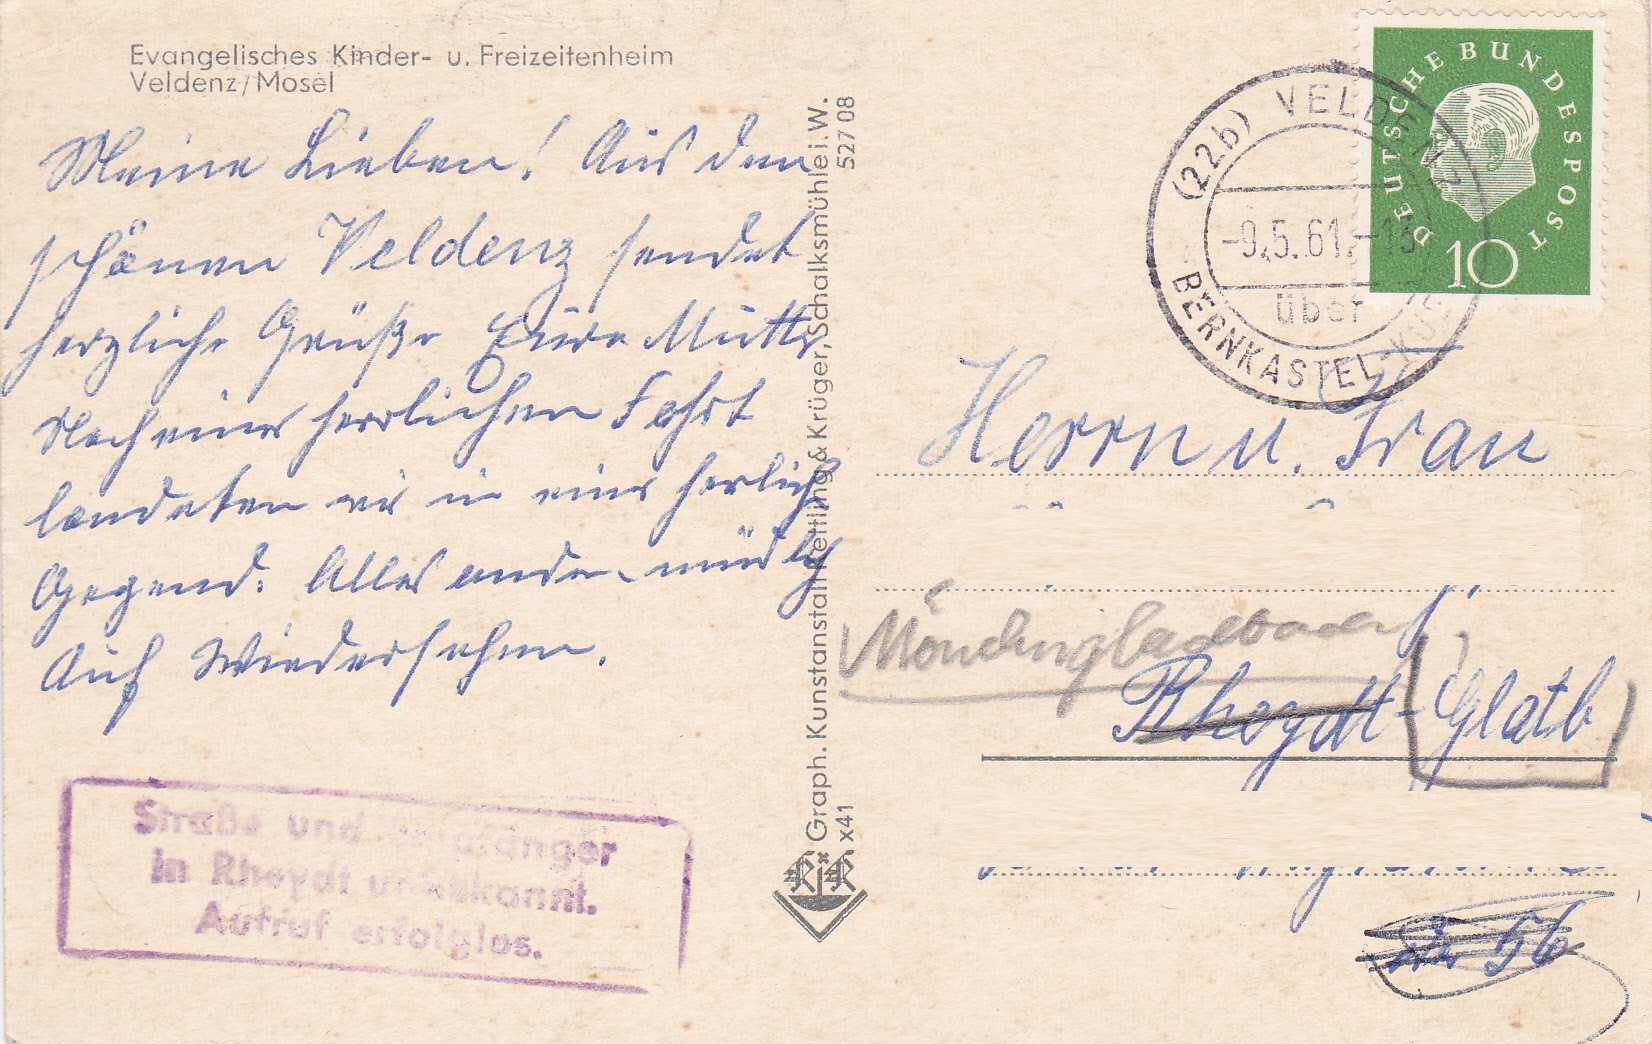 Evangelisches Kinder- u. Freizeitenheim
Veldenz/Mosel
Meine Lieben! Aus dem
schönen Veldenz sendet
herzliche Grüße Eure Mutti
Nach einer herrlichen Fahrt
landeten wir in einer herrlich
Gegend. Alles andere mündlich
Auf Wiedersehen.
Straße und Empfänger
in Rheydt unbekannt.
Aufruf erfolglos.
Graph. Kunstanstalt Kettling & Krüger, Schalksmühle i.W.
x41
527 08
DEUTSCHE BUNDESPOST
10
(22b) VELDENZ
-9.5.61.-13
über
BERNKASTEL-KUES
Herrn u. Frau
Mönchengladbach
Rheydt-Glatb
56